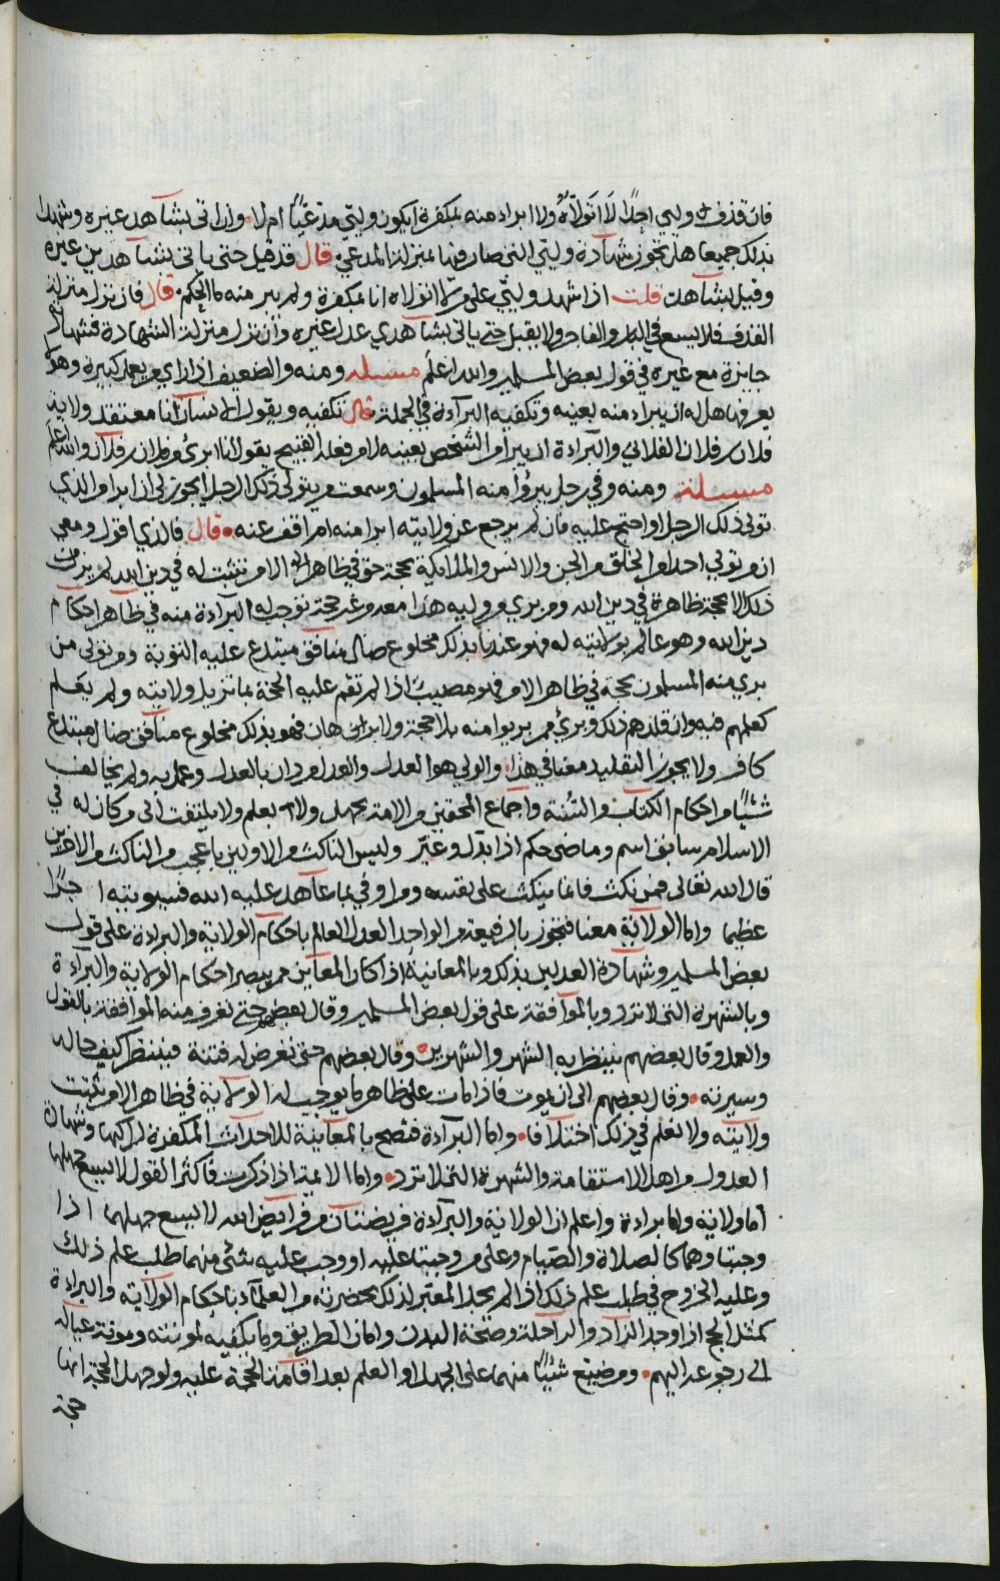 فان قذف وليي احدا لا اتولاه ولا ابراء منه بمكفرة ايكون وليي مدعيا ام لا وان اتى بشاهد غيره وشهدا
بذلك جميعا هل تجوز شهادة وليي التي صار فيها بمنزلة المدعي قال قد قيل حتى ياتي بشاهدين غيره
وقيل بشاهد قلت اذا شهد وليي على من لا اتولاه انا بمكفرة ولم يبر منه ما الحكم قال فان نزل منزلة
القذف فلا يسع في البار والفاجر ولا يقبل حتى ياتي بشاهدي عدل غيره وان نزل منزلة الشهادة فشهادته
جايزة مع غيره في قول بعض المسلمين والله اعلم مسئلة ومنه والضعيف اذا راي من يعمل كبيرة وهو لا
يعرفها هل له ان يبراء منه بعينه وتكفيه البرآءة في الجملة قال تكفيه ويقول بلسانه انا معتقد ولاية
فلان بن فلان الفلاني والبرآءة ان يبرا من الشخص بعينه لا من فعله القبيح يقول انا ابرئ من فلان بن فلان والله اعلم
مسئلة ومنه وفي رجل يبرؤا منه المسلمون وسمعت من يتولى ذلك الرجل ايجوز لي ان ابرا من الذي
تولى ذلك الرجل او احتج عليه فان لم يرجع عن ولايته ابرا منه ام اقف عنه قال فالذي اقول ومعي
ان من تولى احدا من الخلق من الجن والانس والملائكة بحجة حق في ظاهر الامر تثبت له في دين الله لم يزل من
ذلك الا بحجة ظاهرة في دين الله ومن بري من وليه هذا معه من غير حجة توجب له البراءة منه في ظاهر احكام
دين الله وهو عالم بولايته له فهو عندنا بذلك مخلوع ضال منافق مبتدع عليه التوبة ومن تولى من
بري منه المسلمون بحجة في ظاهر الامر فهو مصيب اذا لم تقم عليه الحجة بما تزيل ولايته ولم يعلم
كعلمهم فيه وان قلدهم ذلك وبرئ ممن بريوا منه بلا حجة ولا برهان فهو بذلك مخلوع منافق ضال مبتدع
كافر ولا يجوز التقليد معنا في هذا والولي هو العدل والعدل من دان بالعدل وعمل به ولم يخالف
شيئا من احكام الكتاب والسنة واجماع المحقين من الامة بجهل ولا بعلم ولا يلتفت الى من كان له في
الاسلام سابق اسم وماضي حكم اذا بدل وغير وليس الناكث من الاولين باعجب من الناكث من الاخرين
قال الله تعالى فمن نكث فانما ينكث على نفسه ومن اوفى بما عاهد عليه الله فسيوتيه اجرا
عظيما واما الولاية معنا فتجوز بالرفيعة من الواحد العدل العالم باحكام الولاية والبراءة على قول
بعض المسلمين وشهادة العدلين بذلك وبالمعاينة اذا كان المعاين ممن يبصر احكام الولاية والبرآءة
وبالشهرة التي لا ترد وبالموافقة على قول بعض المسلمين وقال بعضهم حتى تعرف منه الموافقة بالقول
والعمل وقال بعضهم ينتظر به الشهر والشهرين وقال بعضهم حتى تعرض له فتنة فينظر كيف حاله
وسيرته وقال بعضهم الى ان يموت فاذا مات على ظاهر ما يوجب له الولاية في ظاهر الامر ثبتت
ولايته ولا نعلم في ذلك اختلافا واما البرآءة فتصح بالمعاينة للاحداث المكفرة لراكبها وشهادة
العدول من اهل الاستقامة والشهرة التي لا ترد واما الائمة اذا ذكرت فاكثر القول لا يسع جهلها
اما ولاية واما براءة واعلم ان الولاية والبرآءة فريضتان من فرايض الله لا يسع جهلهما اذا
وجبتا وهما كالصلاة والصيام وعلى من وجبتا عليه او وجب عليه شئ منهما طلب علم ذلك
وعليه الخروج في طلب علم ذلك اذا لم يجد المعبر لذلك بحضرته من العلماء باحكام الولاية والبراءة
كمثل الحج اذا وجد الزاد والراحلة وصحة البدن وامان الطريق وما يكفيه لمونته ومونة عياله
الى رجوعه اليهم ومن ضيع شيئا منهما على الجهل او العلم بعد اقامة الحجة عليه ولو جهل الحجة انها
حجة